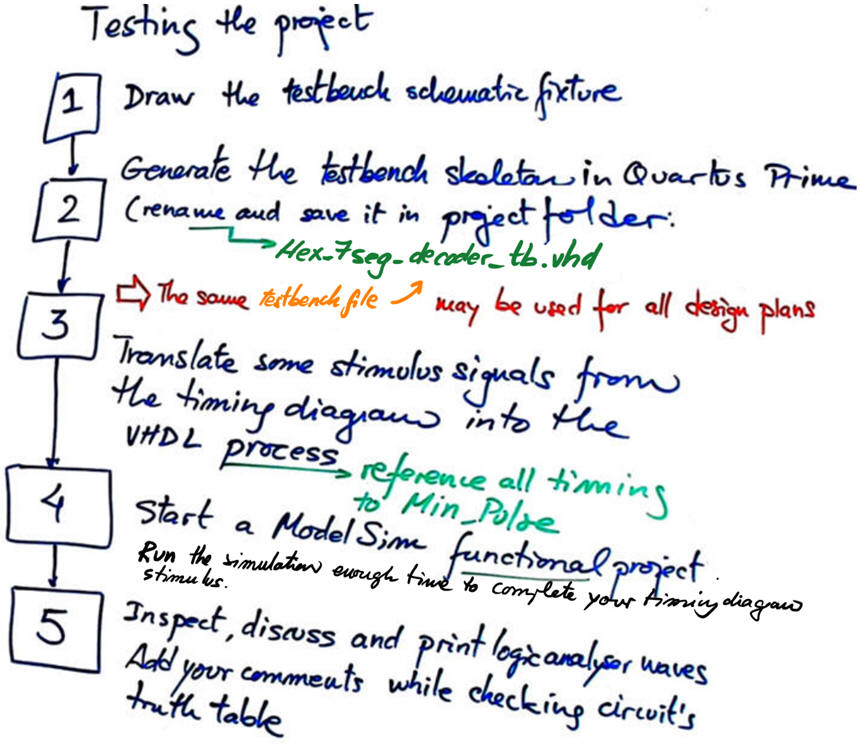 Testing the project
1 Draw the testbench schematic fixture
Generate the testbench skeleton in Quartus Prime
2 (rename and save it in project folder:
Hex_7seg_decoder_tb.vhd
The same testbench file may be used for all design plans
3
Translate some stimulus signals from
the timing diagram into the
VHDL process
reference all timing
to Min_Pulse
4 Start a ModelSim functional project
Run the simulation enough time to complete your timing diagram
stimulus.
5 Inspect, discuss and print logic analyser waves
Add your comments while checking circuit's
truth table